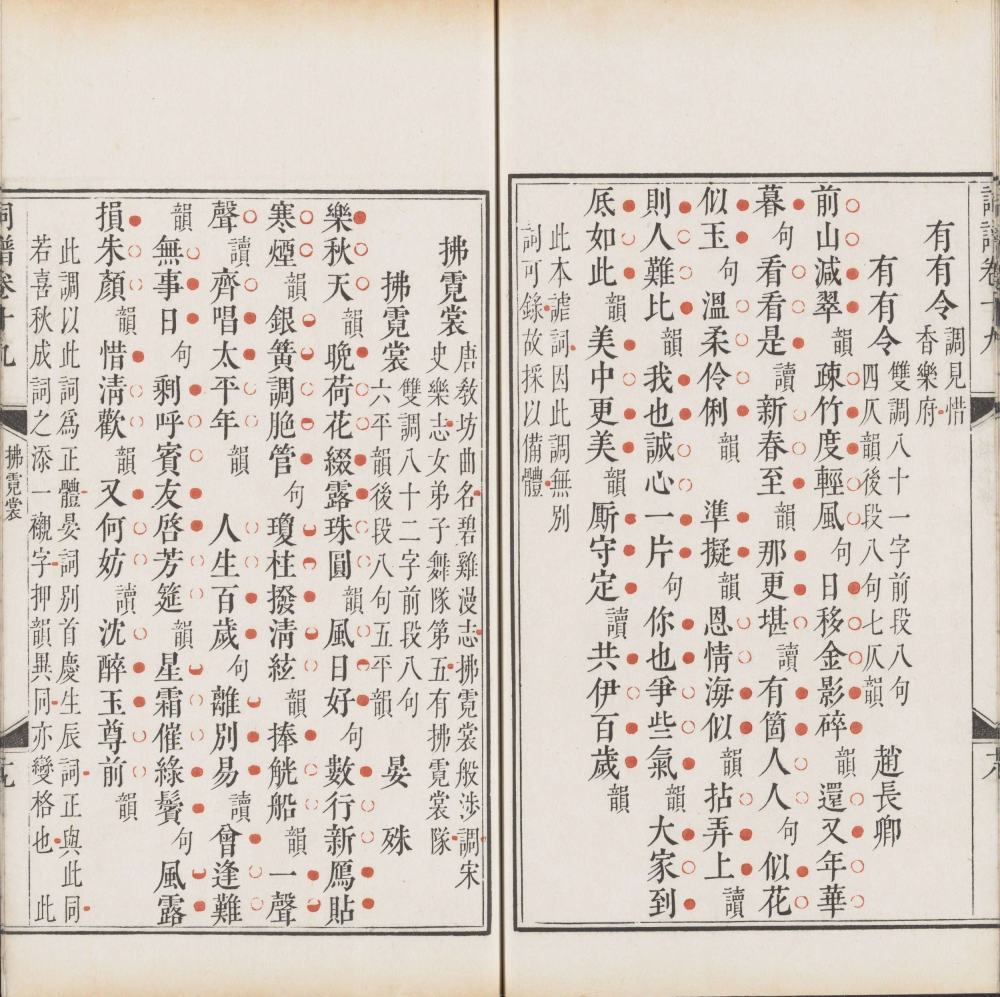 有有令
調見惜
香樂府
有有令
雙調八十一字前段八句
四仄韻後段八句七仄韻
趙長卿
前山減翠韻疎竹度輕風句日移金影碎韻還又年華
暮句看看是讀新春至韻那更堪讀有箇人人句似花
似玉句溫柔伶俐韻準擬韻恩情海似韻拈弄上讀
則人難比韻我也誠心一片句你也爭些氣韻大家到
底如此韻美中更美韻厮守定讀共伊百歲韻
此本謔詞因此調無別
詞可錄故採以備體
詞譜卷十九
拂霓裳
唐敎坊曲名碧雞漫志拂霓裳般涉調宋
史樂志女弟子舞隊第五有拂霓裳隊
拂霓裳
雙調八十二字前段八句
六平韻後段八句五平韻
晏殊
樂秋天韻晚荷花綴露珠圓韻風日好句數行新鴈貼
寒煙韻銀簧調脆管句瓊柱撥淸絃韻捧觥船韻一聲
聲讀齊唱太平年韻人生百歲句離別易讀會逢難
韻無事日句剩呼賓友啓芳筵韻星霜催綠鬢句風露
損朱顏韻惜淸歡韻又何妨讀沈醉玉尊前韻
此調以此詞爲正體晏詞別首慶生辰詞正與此同
若喜秋成詞之添一襯字押韻異同亦變格也 此
詞譜卷十九
拂霓裳